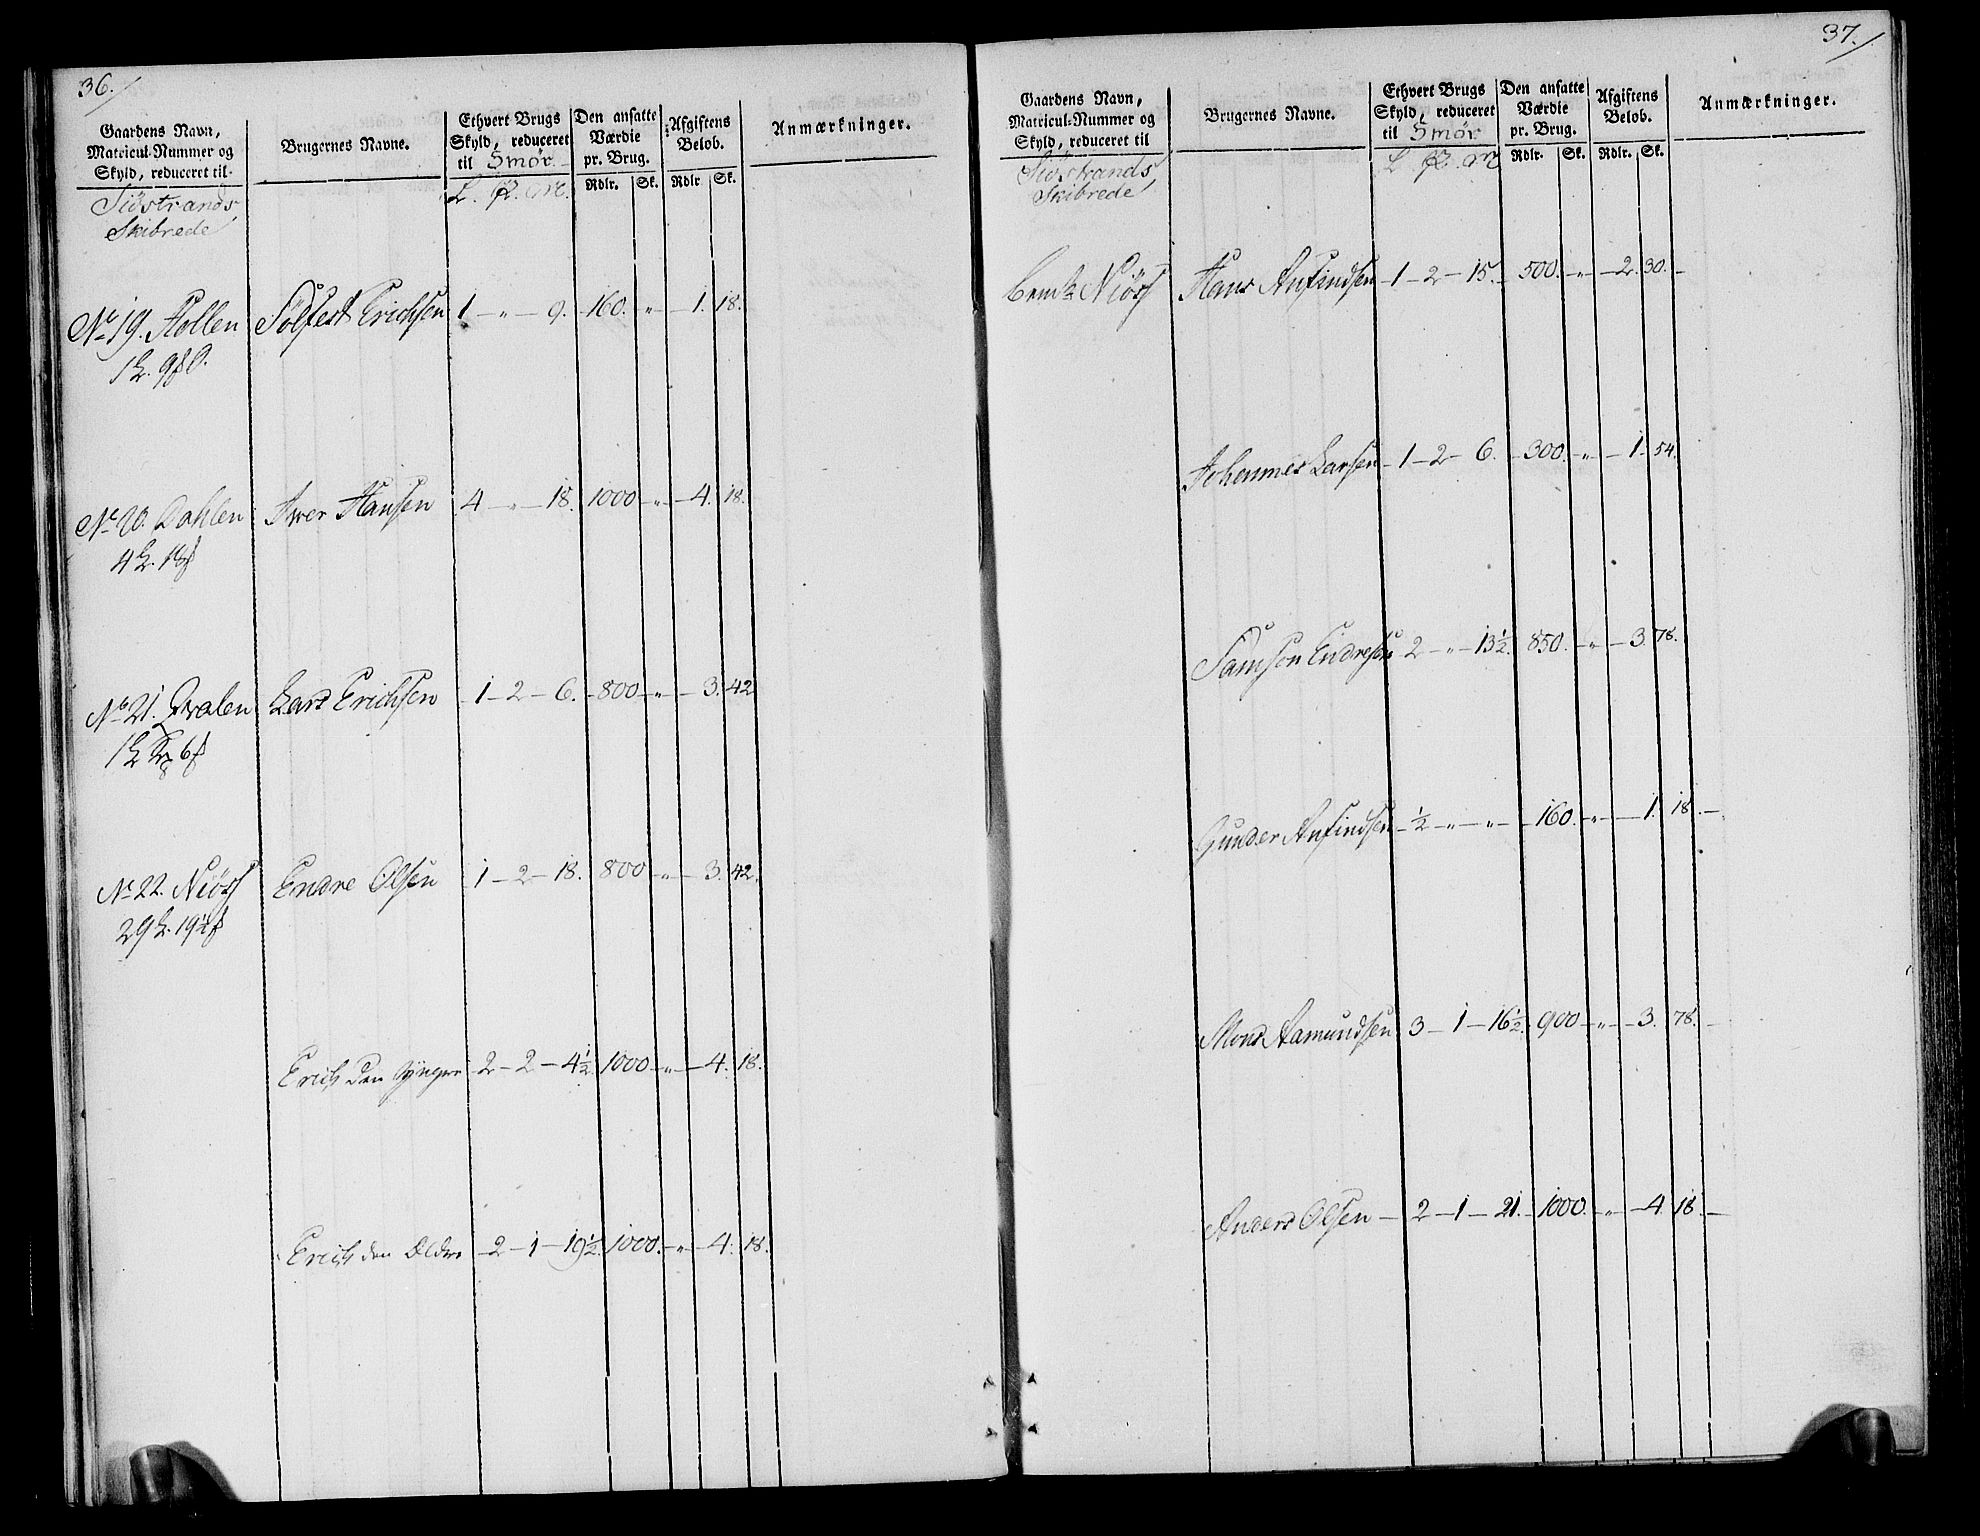 36.
Gaardens Navn,
Matricul-Nummer og
Skyld, reduceret til
Brugernes Navne.
Ethvert Brugs
Skyld, reduceret
til Smør
Den ansatte
Værdie
pr. Brug.
Rdlr. Sk.
Afgiftens
Beløb.
Rdlr Sk.
Anmærkninger.
Siöstrands
Skibrede
L. . .
No 19. 
Sölfest Erichsen 1 - " - 9. 160. " - 1. 18.
No 20. Dahlen
Iver Hansen 4 - " - 18. 1000 " - 4. 18.
No 21. 
Lars Erichsen 1 - 2 - 6. 800 - " - 3. 42
No 22. Niös
Endre Olsen 1 - 2 - 18. 800 - " - 3. 42.
29 19½
Erich den Yngre 2 - 2 - 4½ 1000 - " - 4. 18.
Erich den Ældre 2 - 1 - 19½. 1000. - " - 4. 18.
37.
Gaardens Navn,
Matricul-Nummer og
Skyld, reduceret til
Brugernes Navne.
Ethvert Brugs
Skyld, reduceret
til Smør
Den ansatte
Værdie
pr. Brug.
Rdlr. Sk.
Afgiftens
Beløb.
Rdlr. Sk.
Anmærkninger.
Siöstrands
Skibrede
Niös Hans Anfindsen 1 - 2 - 15. 500. - " - 2. 30. -
Johannes Larsen - 1 - 2 - 6. 300. - " - 1. 54.
Samson Endresen 2 - " - 13½. 850. - " - 3. 78.
Gunder Anfindsen - ½ - " - " - 160. - " - 1. 18 -
Mons Aamundsen 3 - 1 - 16½. 900 - " - 3. 78. -
Anders Olsen - 2 - 1 - 21. 1000. - " - 4. 18. -